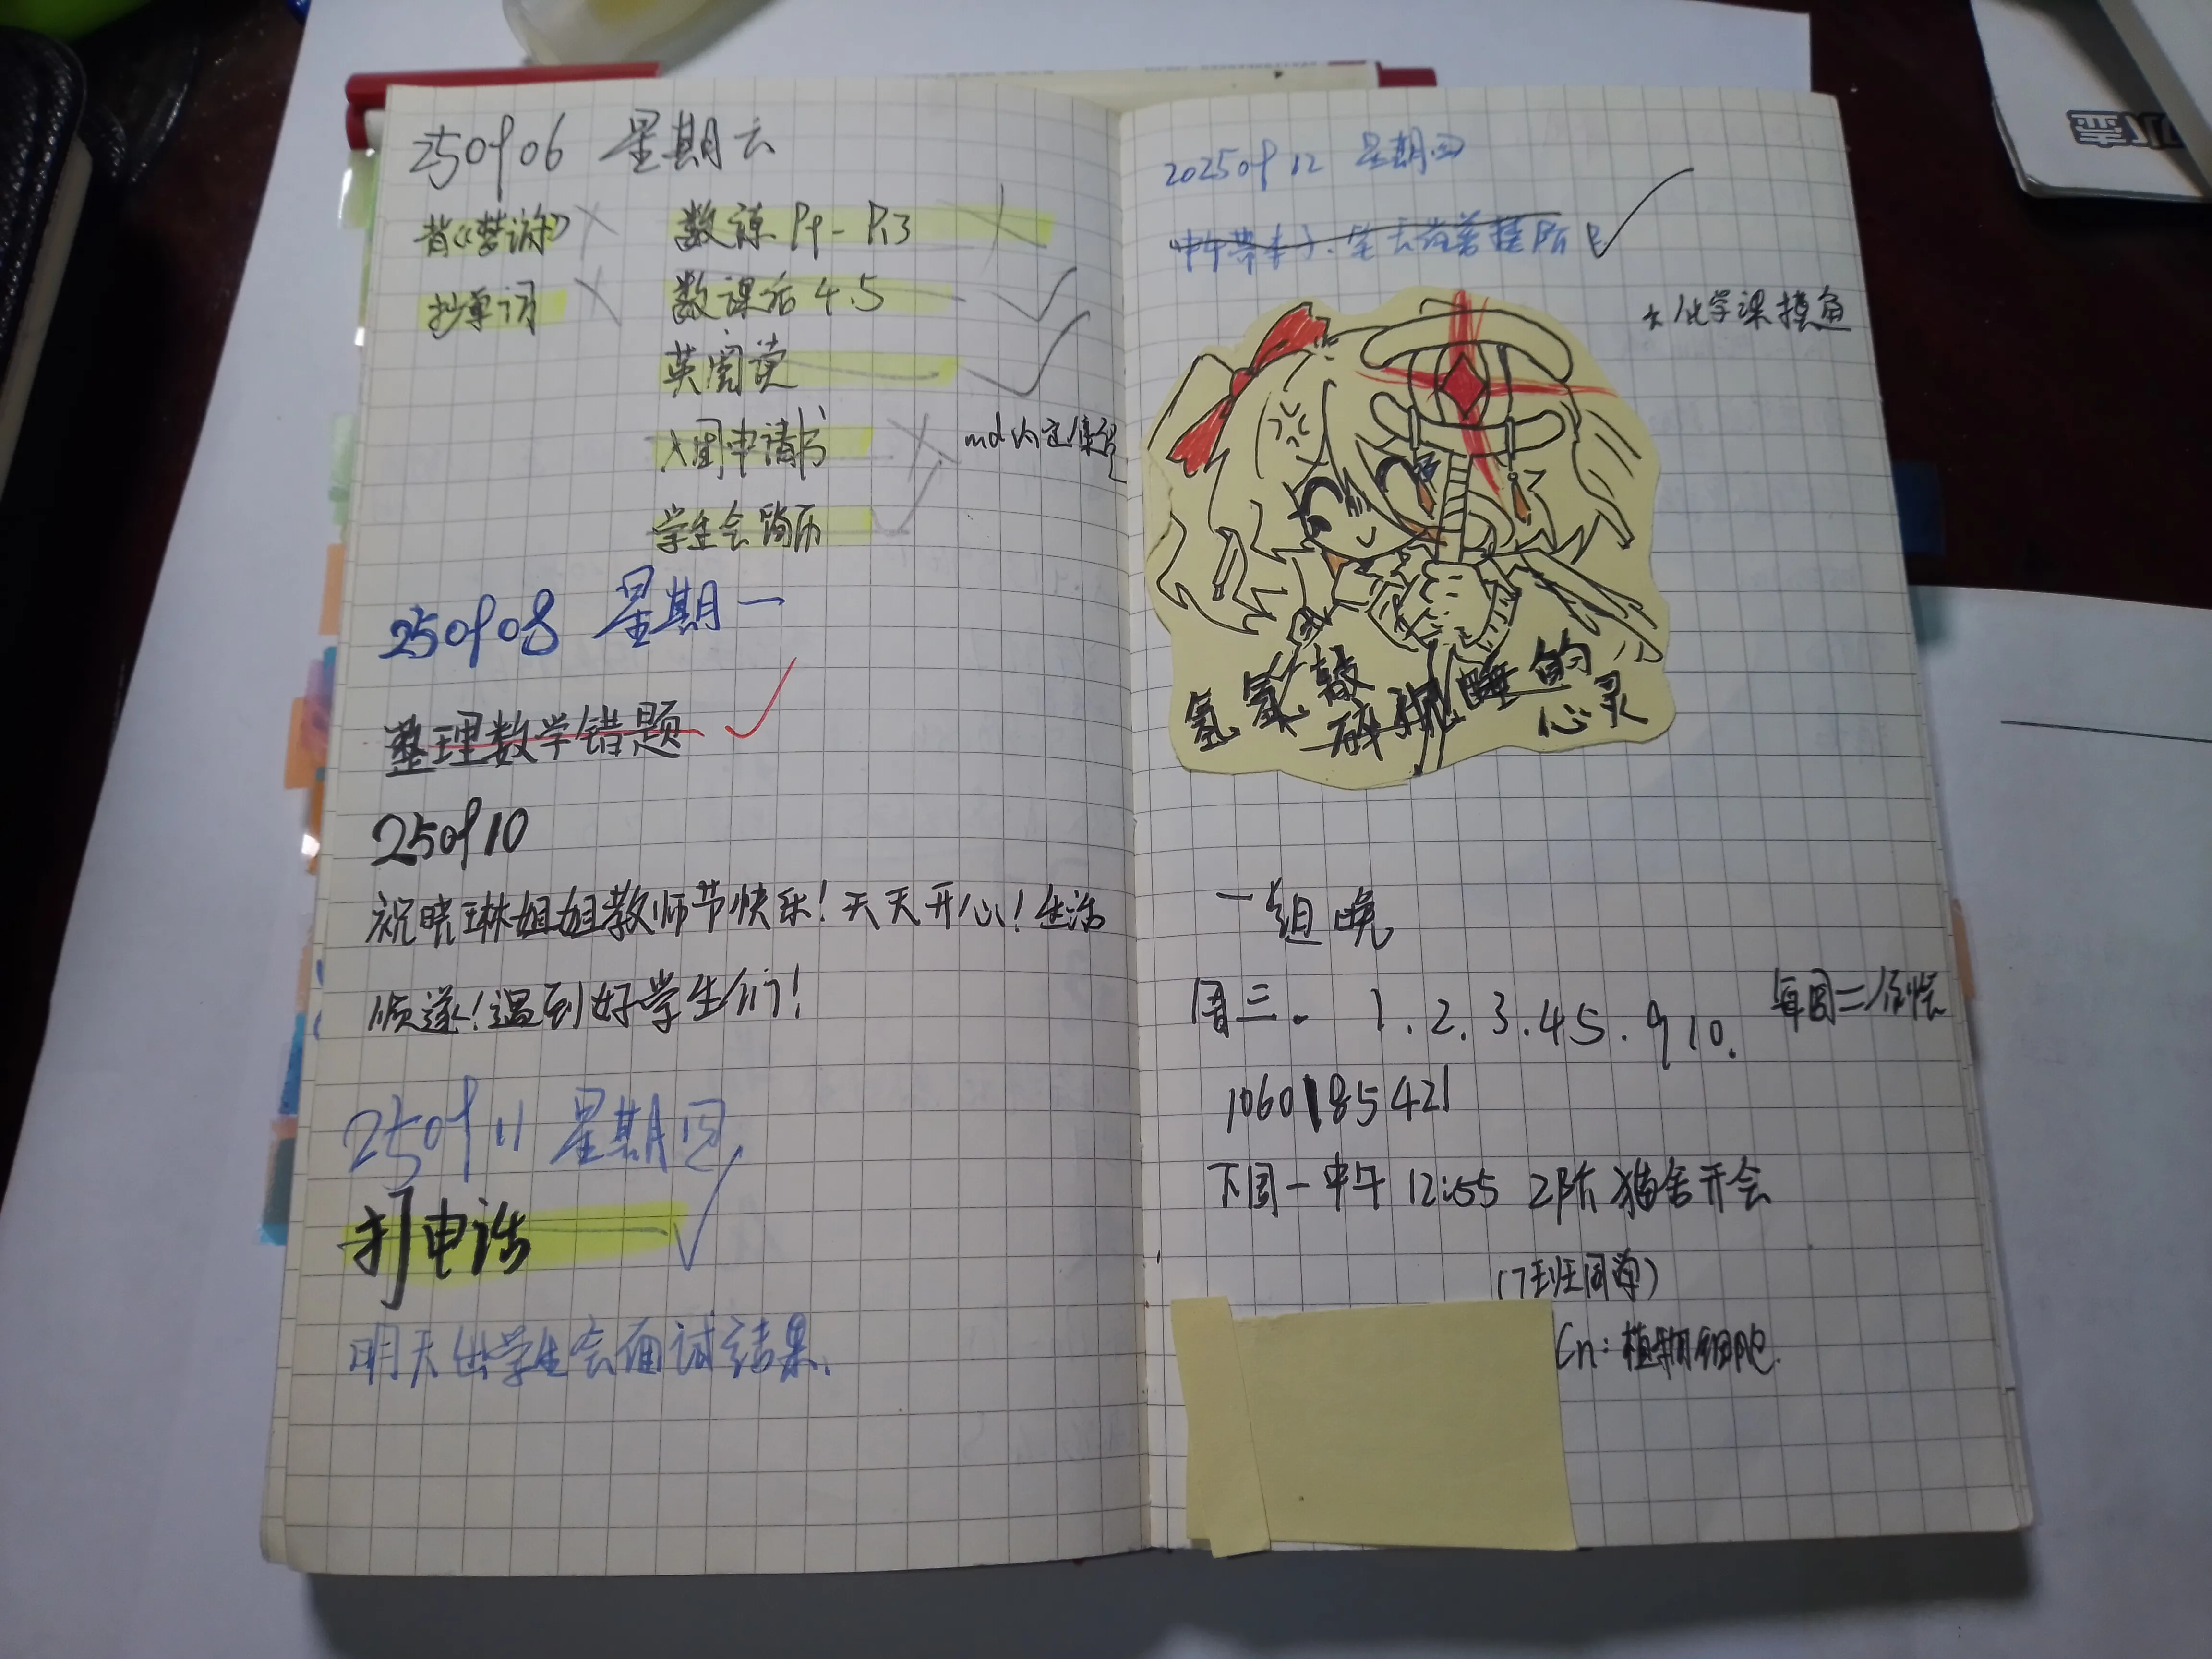 250906 星期六
背《梦游》 数练 P9-P13
抄单词 数课后 4.5
英阅读
入团申请书 md内定
学生会简历
250908 星期一
整理数学错题
250910
祝晓琳姐姐教师节快乐!天天开心!生活
顺遂!遇到好学生们!
250911 星期四
打电话
明天出学生会面试结果.
20250912 星期四
中午带本子、笔去
化学课摸鱼
氢氦敲
碎 睡的
心灵
一组 晚
周三. 1.2.3.4 5.9 10. 每周二
1060185421
下周一中午 12:55 2阶 猫舍开会
(7班同学)
Cn:植物细胞.